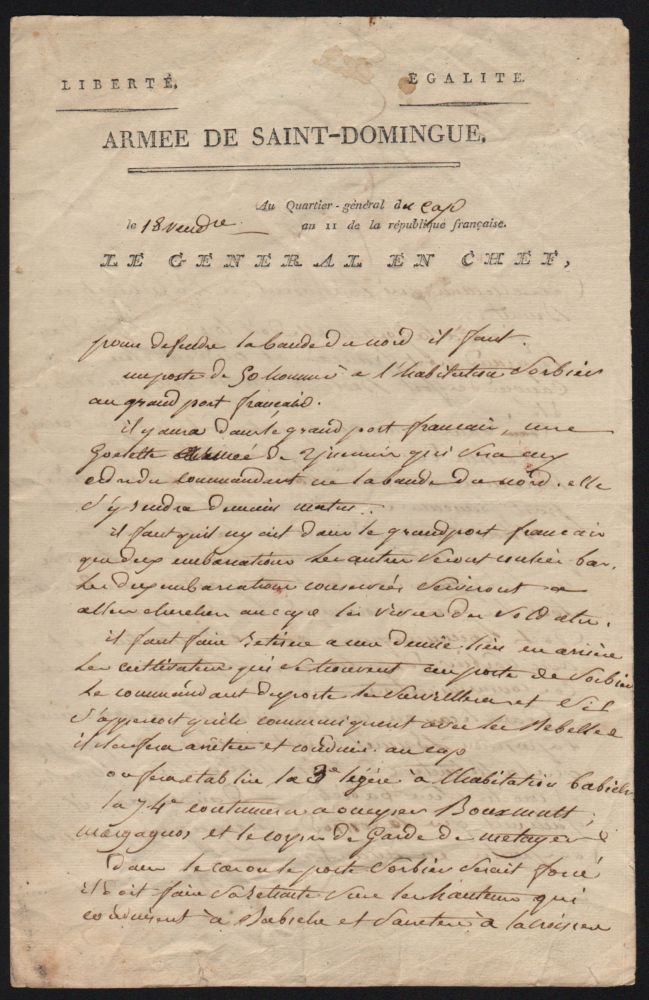 LIBERTÉ,
EGALITE.
ARMEE DE SAINT-DOMINGUE.
Au Quartier-général du cap
le 18 vendre. an 11 de la république française.
LE GENERAL EN CHEF,
pour defendre la bande du nord il faut
un poste de 50 hommes a l'habitation Sorbier
au grand port francais.
il y aura dans le grand port francais, une
Goelette armée de qui sera aux
ordre du commandant de la bande du nord. elle
s'y rendra demain matin.
il faut qu'il ny ait dans le grand port francais
que deux embarcations les autres seront coulées bas.
Les deux embarcations conservées serviront a
aller chercher au cap les vivres des soldats.
il faut faire retirer a une demie lieu en arriere
les cultivateurs qui se trouvent au poste de Sorbier
Le commandant du poste les surveillera et s'il
s'apercoit qu'ils communiquent avec les Rebelles
il les fera arrêter et conduire au cap
on fera etablir la 3e légère à l'habitation babiche
la 74e continuera a occuper
et le corps de Garde de metayer
dans le cas ou le poste Sorbier serait forcé
il doit faire sa retraite sur les hauteurs qui
conduisent à Babiche et s'arreter à